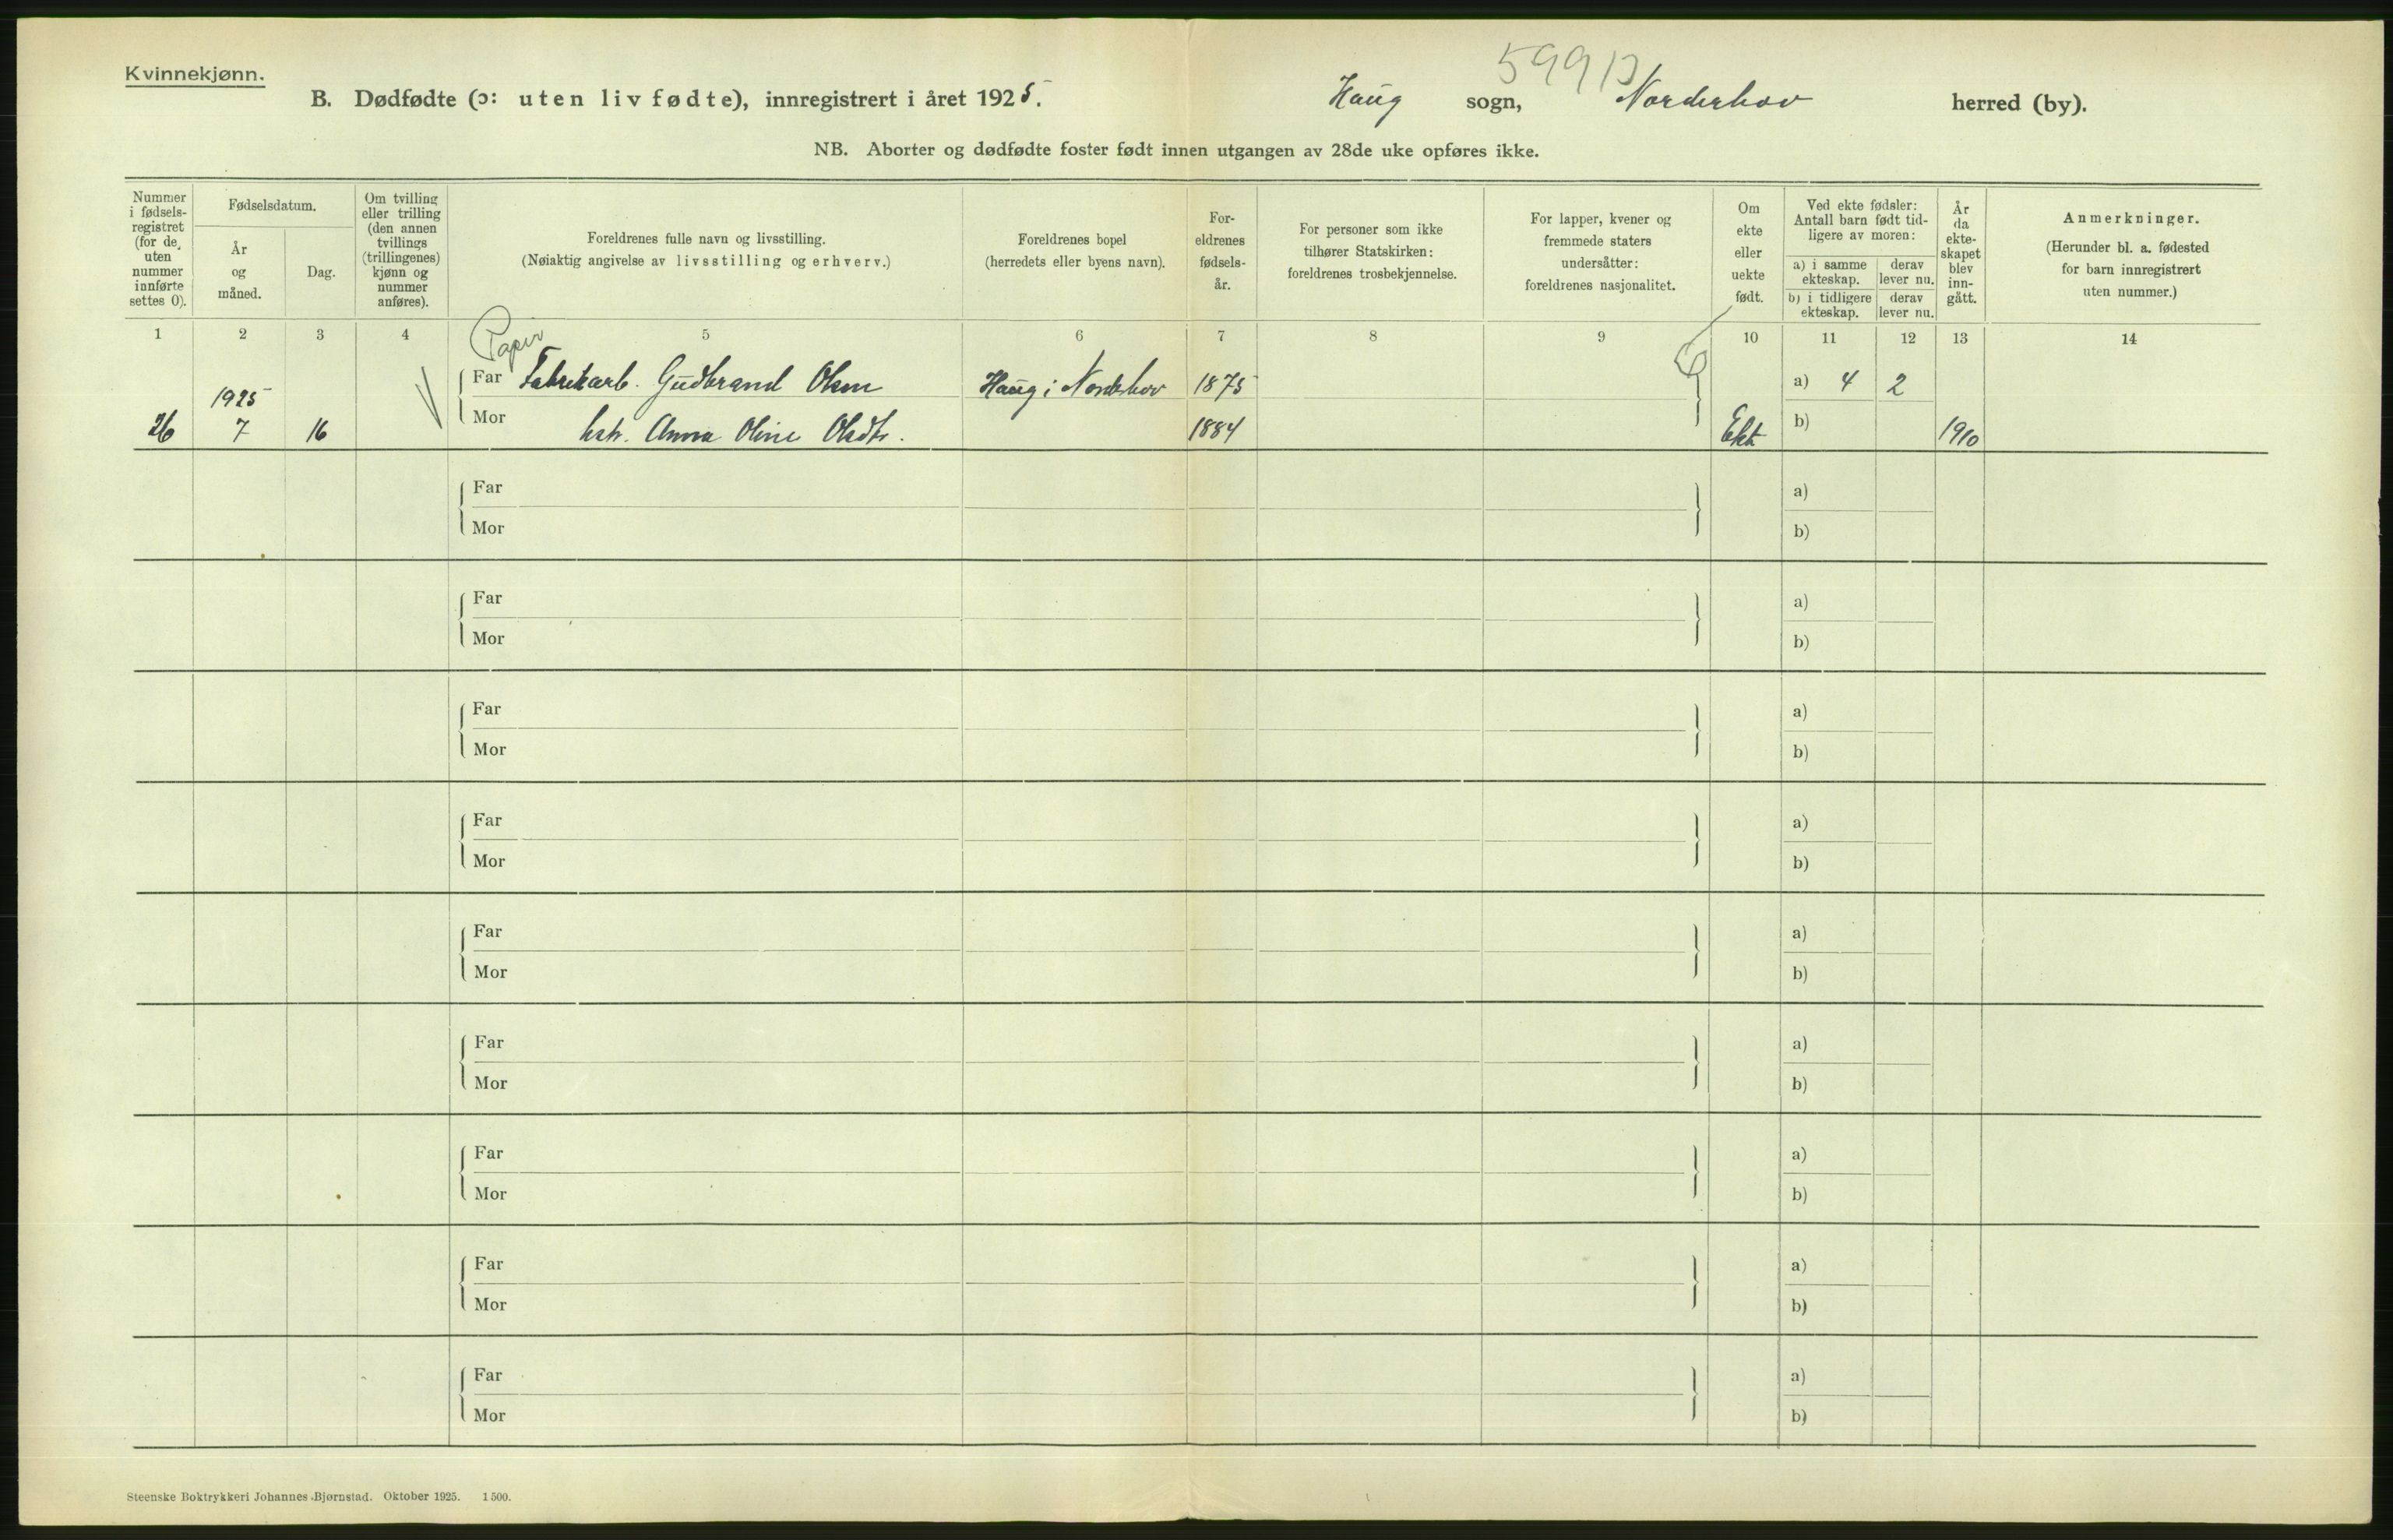 Kvinnekjønn.
5 9 9 13
B. Dødfødte (ɔ: uten liv fødte), innregistrert i året 1925. Haug sogn, Norderhov herred (by).
NB. Aborter og dødfødte foster født innen utgangen av 28de uke opføres ikke.
Nummer i fødsels- registret (for de uten nummer innførte settes 0).
Fødselsdatum.
År og måned.
Dag.
Om tvilling eller trilling (den annen tvillings (trillingenes) kjønn og nummer anføres).
Foreldrenes fulle navn og livsstilling.
(Nøiaktig angivelse av livsstilling og erhverv.)
Foreldrenes bopel
(herredets eller byens navn).
For- eldrenes fødsels- år.
For personer som ikke tilhører Statskirken: foreldrenes trosbekjennelse.
For lapper, kvener og fremmede staters undersåtter: foreldrenes nasjonalitet.
Om ekte eller uekte født.
Ved ekte fødsler: Antall barn født tid- ligere av moren:
a) i samme ekteskap. derav lever nu.
b) i tidligere ekteskap. derav lever nu.
År da ekte- skapet blev inn- gått.
Anmerkninger.
(Herunder bl. a. fødested for barn innregistrert uten nummer.)
1 2 3 4 5 6 7 8 9 10 11 12 13 14
Papir
Far Fabrikarb. Gudbrand Olsen Haug i Norderhov 1875 a) 4 2
1925
26 7 16 Mor hstr. Anna Oline Olsdtr. 1884 Ekt b) 1910
Far a)
Mor b)
Far a)
Mor b)
Far a)
Mor b)
Far a)
Mor b)
Far a)
Mor b)
Far a)
Mor b)
Far a)
Mor b)
Far a)
Mor b)
Far a)
Mor b)
Steenske Boktrykkeri Johannes Bjørnstad. Oktober 1925. 1500.